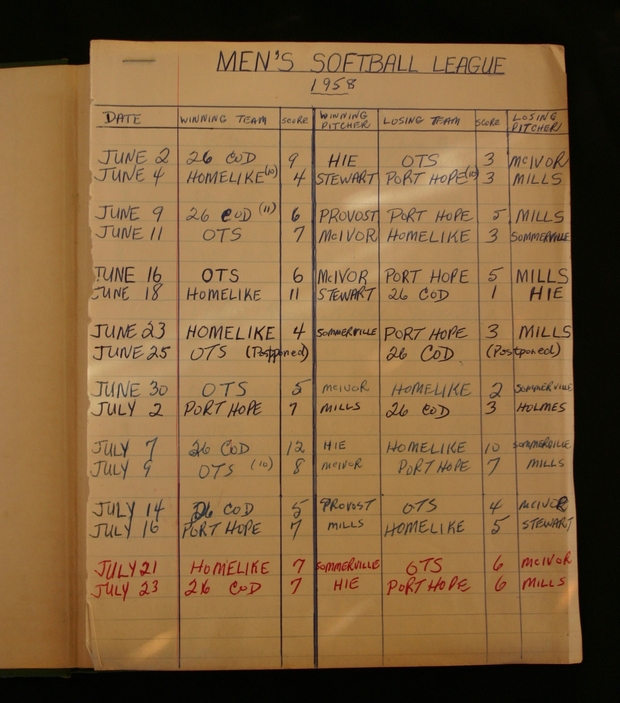 MEN'S SOFTBALL LEAGUE
1958
DATE WINNING TEAM SCORE WINNING PITCHER LOSING TEAM SCORE LOSING PITCHER
JUNE 2 26 COD 9 HIE OTS 3 MCIVOR
JUNE 4 HOMELIKE (10) 4 STEWART PORT HOPE (10) 3 MILLS
JUNE 9 26 COD (11) 6 PROVOST PORT HOPE 5 MILLS
JUNE 11 OTS 7 MCIVOR HOMELIKE 3 SOMMERVILLE
JUNE 16 OTS 6 MCIVOR PORT HOPE 5 MILLS
JUNE 18 HOMELIKE 11 STEWART 26 COD 1 HIE
JUNE 23 HOMELIKE 4 SOMMERVILLE PORT HOPE 3 MILLS
JUNE 25 OTS (Postponed) 26 COD (Postponed)
JUNE 30 OTS 5 MCIVOR HOMELIKE 2 SOMMERVILLE
JULY 2 PORT HOPE 7 MILLS 26 COD 3 HOLMES
JULY 7 26 COD 12 HIE HOMELIKE 10 SOMMERVILLE
JULY 9 OTS (10) 8 MCIVOR PORT HOPE 7 MILLS
JULY 14 26 COD 5 PROVOST OTS 4 MCIVOR
JULY 16 PORT HOPE 7 MILLS HOMELIKE 5 STEWART
JULY 21 HOMELIKE 7 SOMMERVILLE OTS 6 MCIVOR
JULY 23 26 COD 7 HIE PORT HOPE 6 MILLS